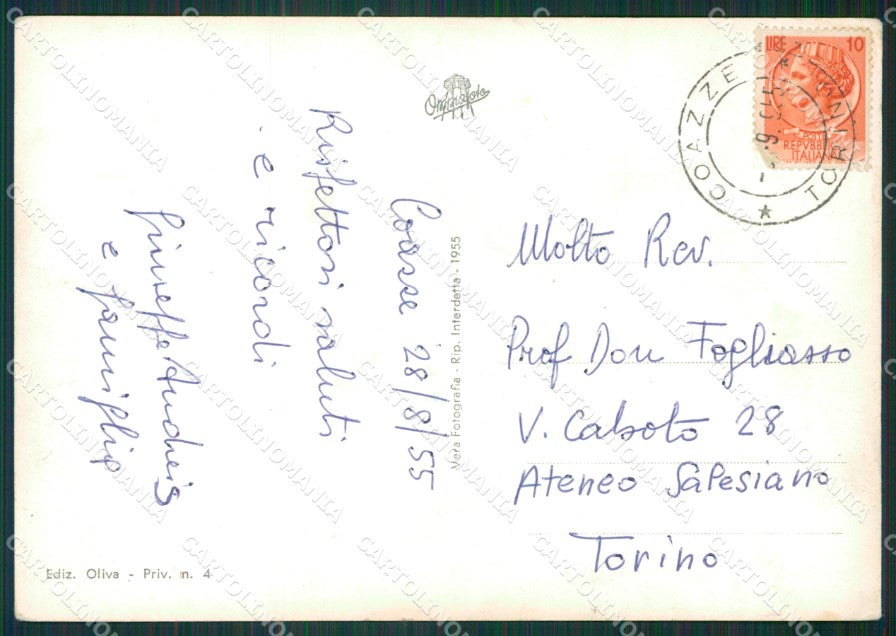 Coazze 28/8/55
Rispettosi saluti
e ricordi
Ginetta Andreis
e famiglia
Molto Rev.
Prof Don Fogliasso
V. Caboto 28
Ateneo Salesiano
Torino
Vera Fotografia - Rip. Interdetta - 1955
Ediz. Oliva - Priv. n. 4
LIRE 10
POSTE
REPVBBLICA
ITALIANA
COAZZE
TORINO
CARTOLINOMANIA